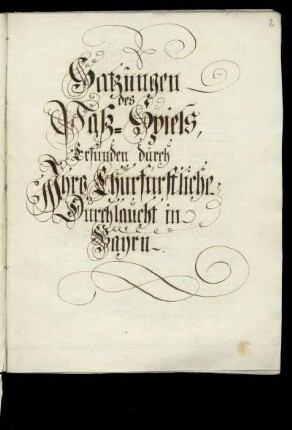 2
Satzungen
des
Paß=Spiels,
Erfunden durch
Ihro Churfürstliche
Durchlaucht in
Bayrn.